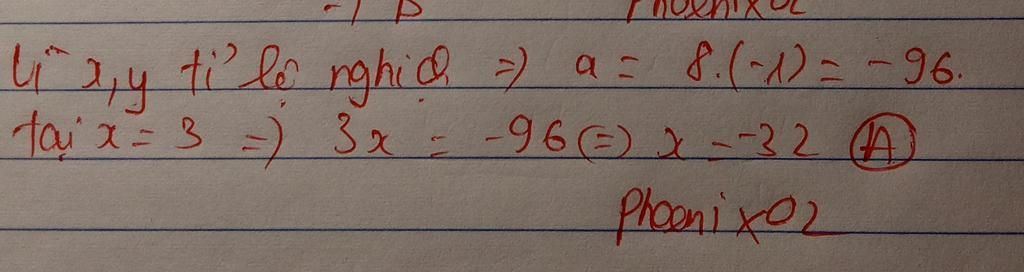 Phoenix02
Vì x, y tỉ lệ nghịch => a = 8.(-1) = -96.
tại x = 3 => 3x = -96 (=) x = -32 (A)
Phoenix02